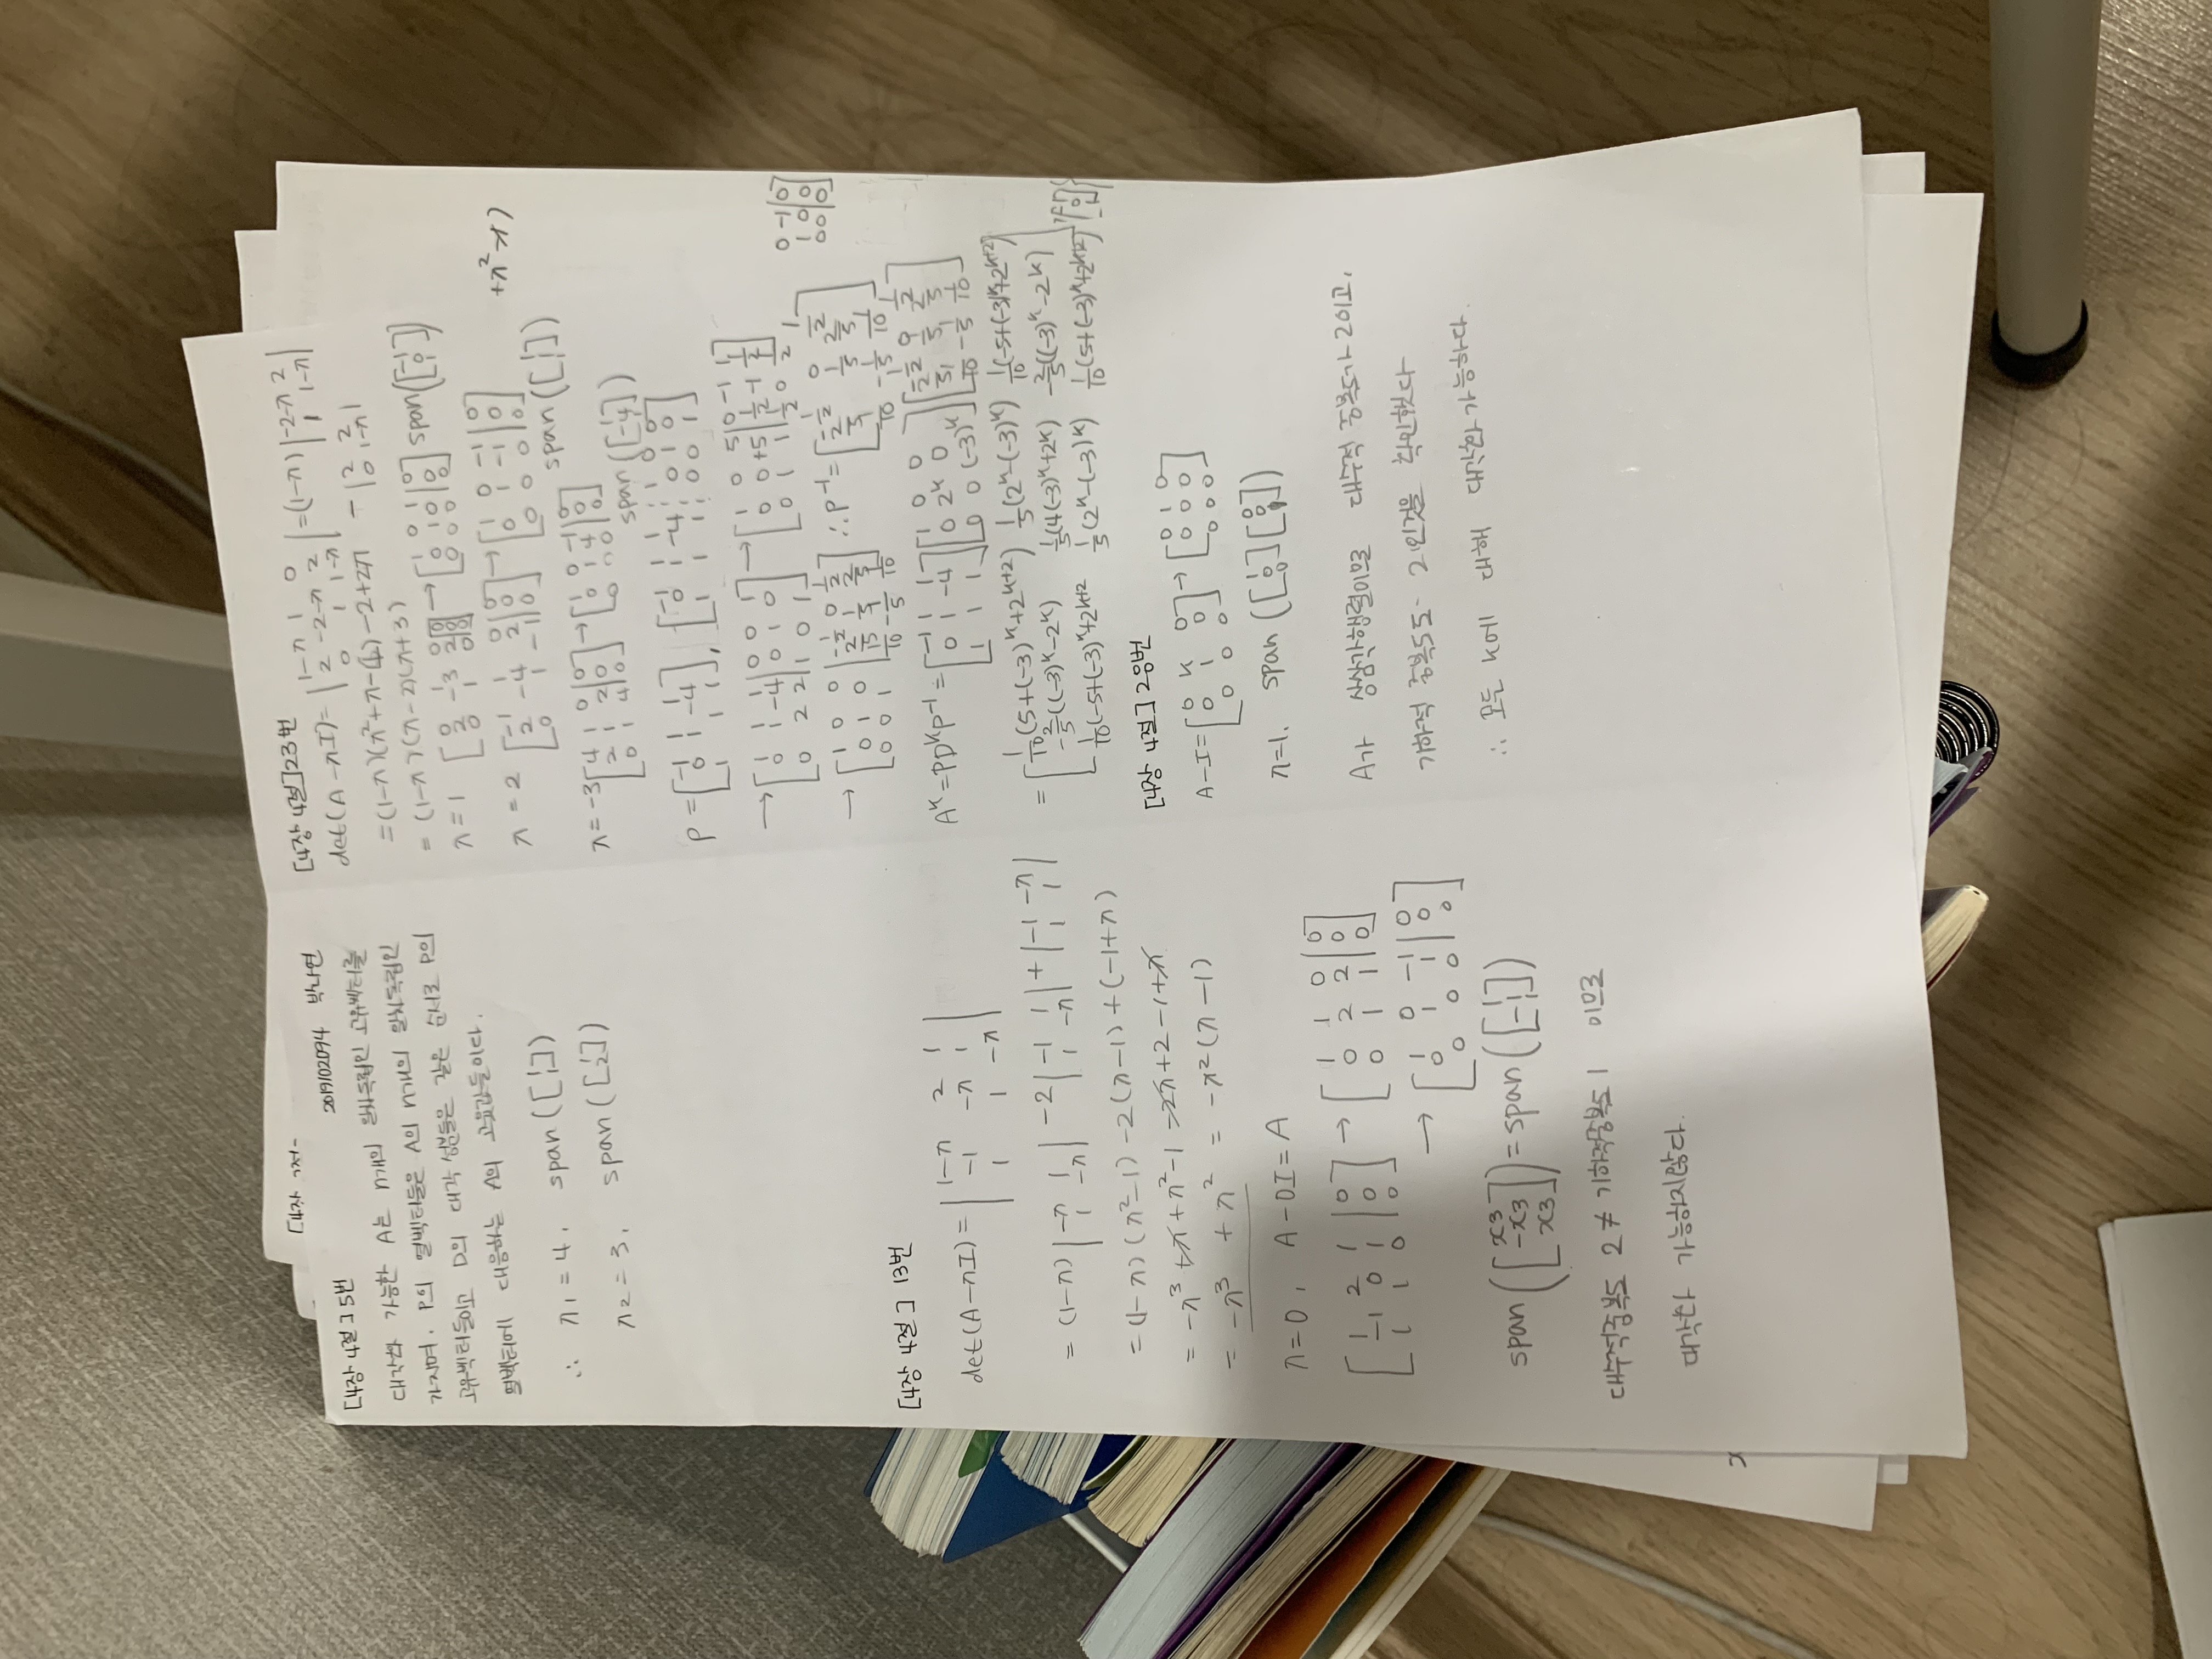 [4장 4절] 5번
2019102094 박나연
대각화 가능한 A는 n개의 일차독립인 고유벡터를
가지며. P의 열벡터들은 A의 n개의 일차독립인
고유벡터들이고 D의 대각 성분들은 같은 순서로 P의
열벡터에 대응하는 A의 고윳값들이다.
∴ λ1 = 4, span([1 1])
λ2 = 3, span([1 2])
[4장 4절] 13번
det(A-λI) = |1-λ 2 1
-1 -λ 1
1 1 -λ|
= (1-λ) |-λ 1
1 -λ| -2 |-1 1
1 -λ| + |-1 -λ
1 1|
= (1-λ)(λ²-1) -2(λ-1) + (-1+λ)
= -λ³ +λ+λ²-1 -2λ+2-1+λ
= -λ³ +λ² = -λ²(λ-1)
λ=0, A-0I=A
[1 2 1 | 0
-1 0 1 | 0
1 1 0 | 0] → [1 1 0 | 0
0 2 2 | 0
0 1 1 | 0]
→ [1 0 -1 | 0
0 1 1 | 0
0 0 0 | 0]
span([x3
-x3
x3]) = span([1
-1
1])
대수적중복도 2 ≠ 기하적중복도 1 이므로
대각화 가능하지않다.
[4장 4절] 23번
det(A-λI) = |1-λ 1 0
2 -2-λ 2
0 1 1-λ| = (1-λ) |-2-λ 2
1 1-λ|
- |2 2
0 1-λ|
= (1-λ)(λ²+λ-4) -2+2λ
= (1-λ)(λ-2)(λ+3)
λ=1 [0 1 0 | 0
2 -3 2 | 0
0 1 0 | 0] → [1 0 1 | 0
0 1 0 | 0
0 0 0 | 0] span([-1
0
1])
λ=2 [-1 1 0 | 0
2 -4 2 | 0
0 1 -1 | 0] → [1 0 -1 | 0
0 1 -1 | 0
0 0 0 | 0]
span([1
1
1])
λ=-3 [4 1 0 | 0
2 1 2 | 0
0 1 4 | 0] → [1 0 -1 | 0
0 1 4 | 0
0 0 0 | 0]
span([1
-4
1])
P = [-1 1 1
0 1 -4
1 1 1], [-1 1 1 1 0 0
0 1 -4 0 1 0
1 1 1 0 0 1]
→ [1 1 1 | 0 0 1
0 1 -4 | 0 1 0
0 2 2 | 1 0 1] → [1 0 5 | 0 -1 1
0 0 +5 | 1/2 -1 1/2
0 1 1 | 1/2 0 1/2]
0 -1 | 0
1 0 | 0
0 0 | 0]
→ [1 0 0 | -1/2 0 1/2
0 1 0 | 2/5 1/5 2/5
0 0 1 | 1/10 -1/5 1/10] ∴ P⁻¹ = [-1/2 0 1/2
2/5 1/5 2/5
1/10 -1/5 1/10]
A^k = PD^kP⁻¹ = [-1 1 1
0 1 -4
1 1 1] [1 0 0
0 2^k 0
0 0 (-3)^k] [-1/2 0 1/2
2/5 1/5 2/5
1/10 -1/5 1/10]
= [1/10(5+(-3)^k+2^(k+2)) 1/5(2^k-(-3)^k) 1/10(-5+(-3)^k+2^(k+2))
-2/5((-3)^k-2^k) 1/5(4(-3)^k+2^k) -2/5((-3)^k-2^k)
1/10(-5+(-3)^k+2^(k+2) 1/5(2^k-(-3)^k) 1/10(5+(-3)^k+2^(k+2))]
[4장 4절] 28번
A-I = [0 k 0
0 1 0
0 0 0] → [0 1 0
0 0 0
0 0 0]
λ=1. span([1
0
0] [0
0
1])
A가 상삼각행렬이므로 대수적 중복도가 2이고,
기하적 중복도도 2인것을 확인했다
∴ 모든 k에 대해 대각화 가능하다.